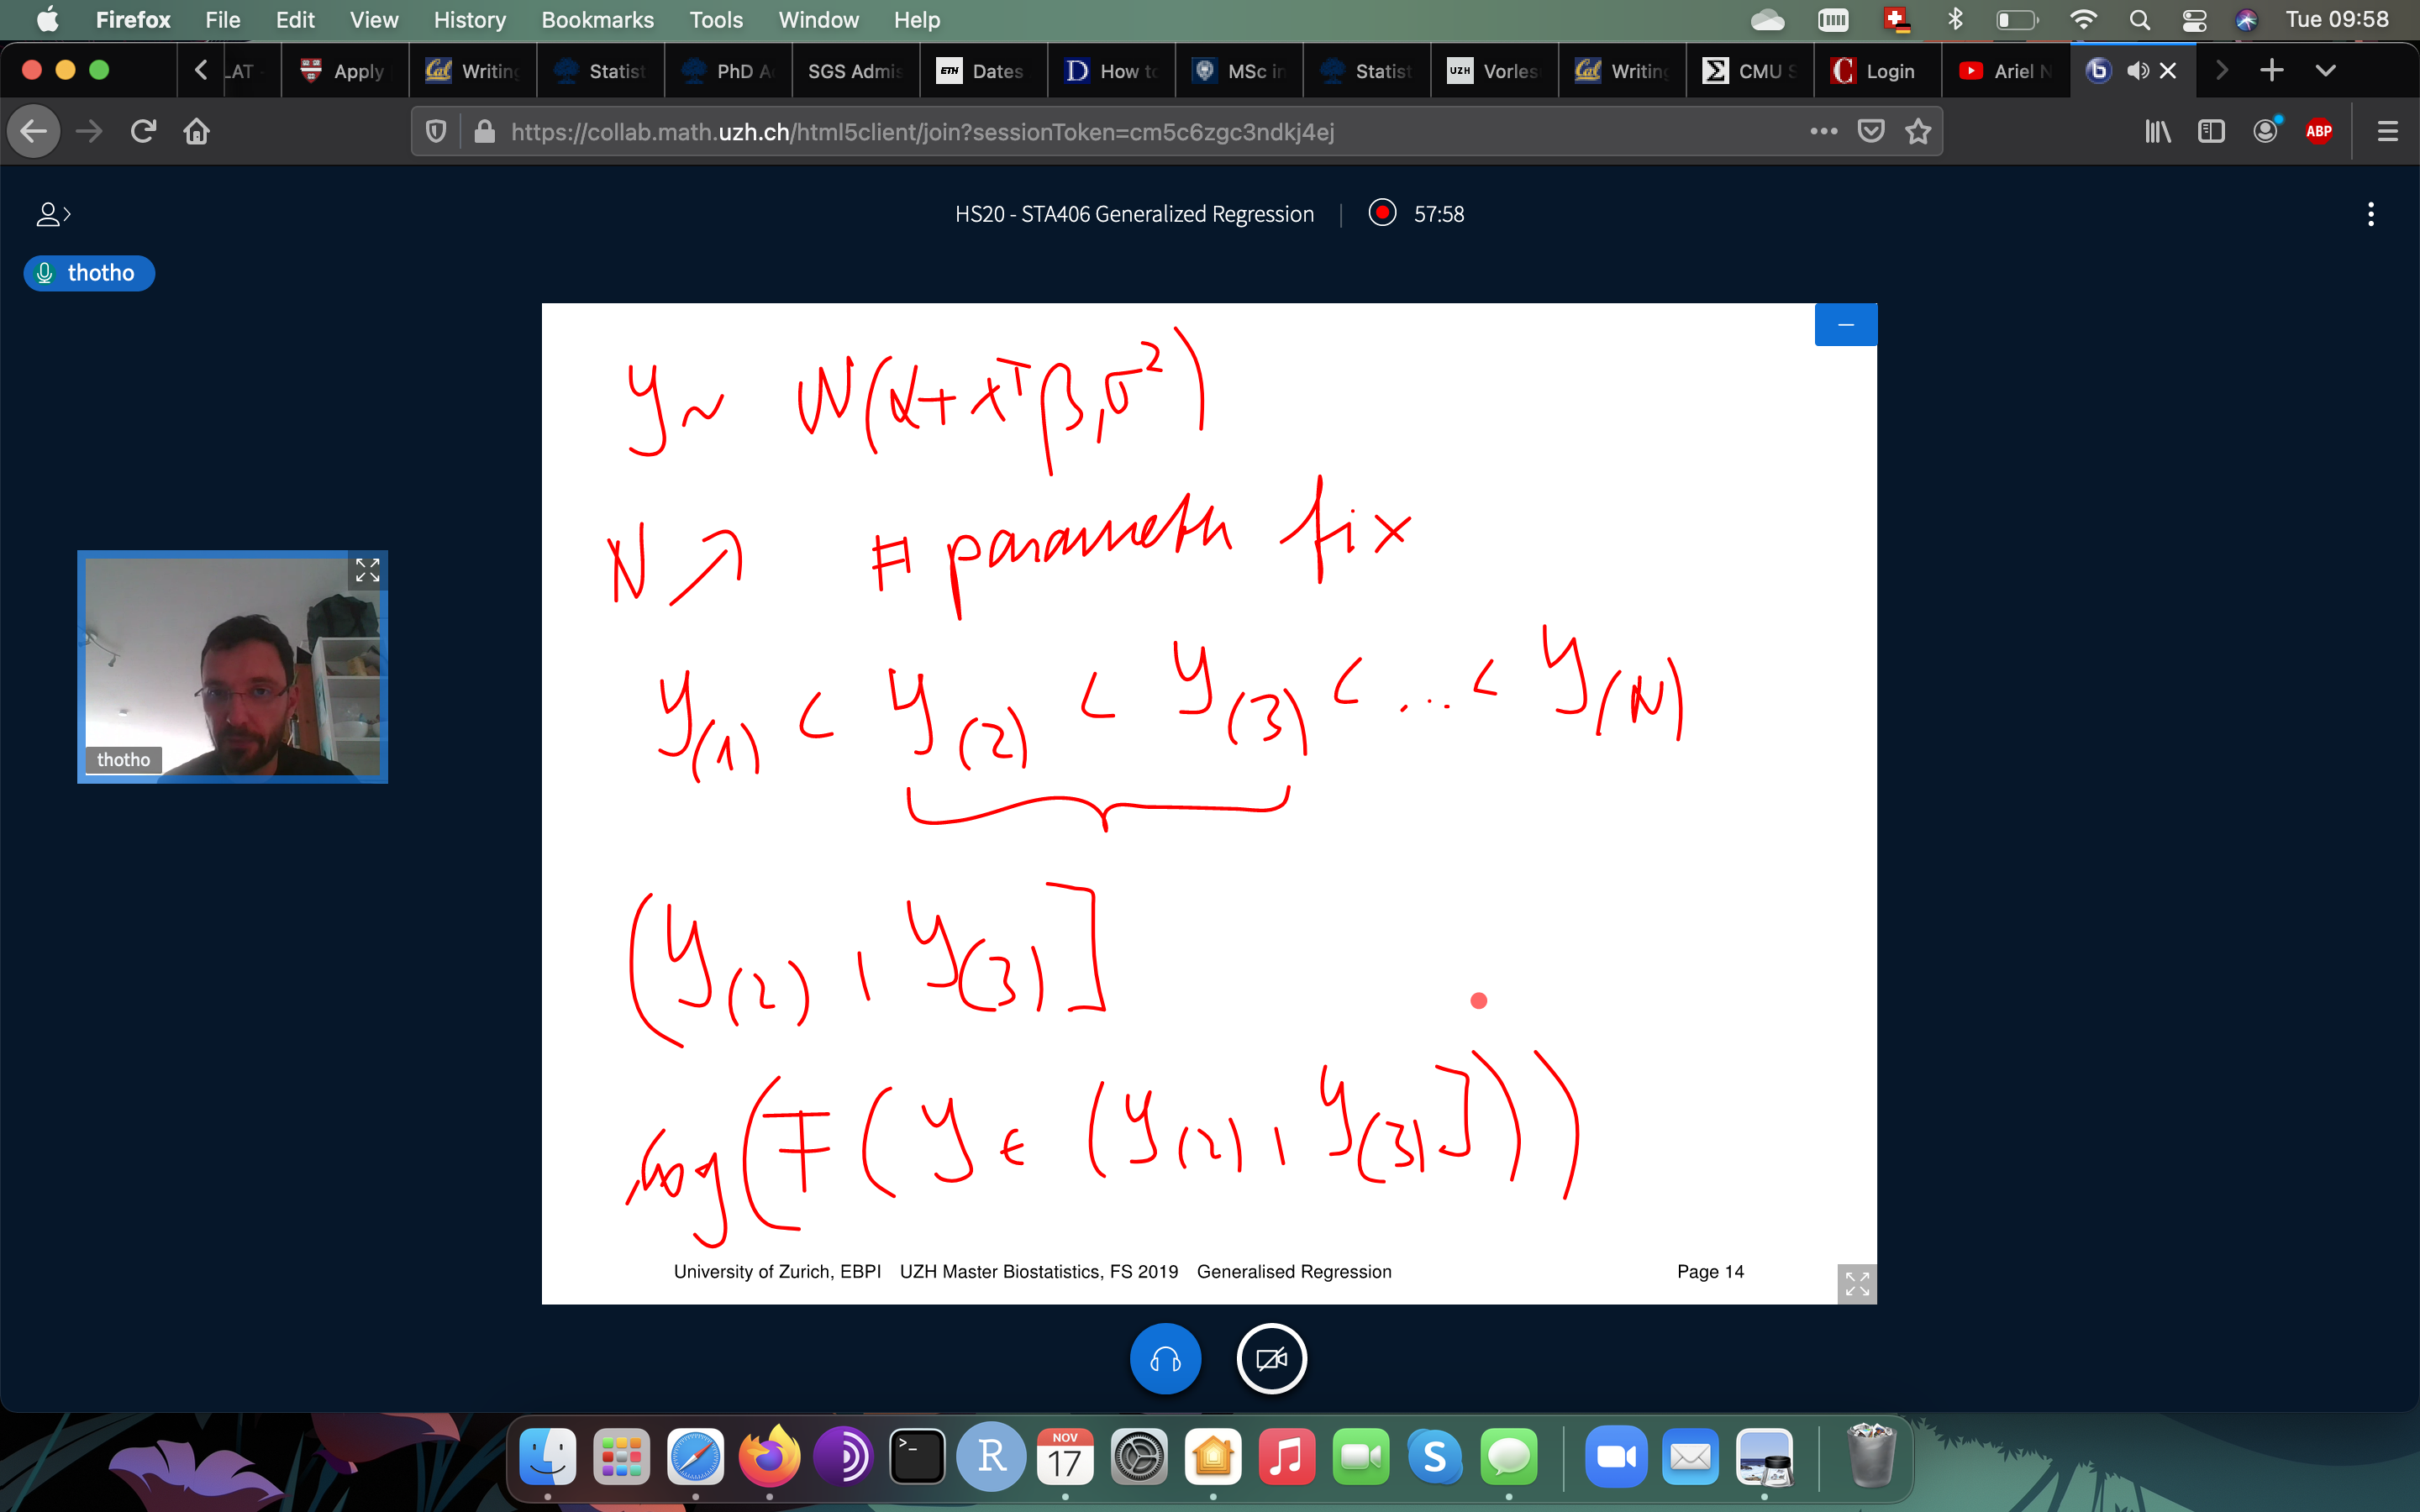 Firefox File Edit View History Bookmarks Tools Window Help Tue 09:58
LAT Apply Cal Writing Statist PhD A SGS Admis ETH Dates D How to MSc in Statist UZH Vorles Cal Writing Σ CMU S C Login Ariel N b
https://collab.math.uzh.ch/html5client/join?sessionToken=cm5c6zgc3ndkj4ej ABP
HS20 - STA406 Generalized Regression | 57:58
thotho
y ~ N(α + xᵀβ, σ²)
N ↗ # parameth fix
y(1) < y(2) < y(3) < ... < y(N)
thotho
(y(2), y(3)]
log(F(y ∈ (y(2), y(3)]))
University of Zurich, EBPI UZH Master Biostatistics, FS 2019 Generalised Regression Page 14
>_ R NOV 17 S